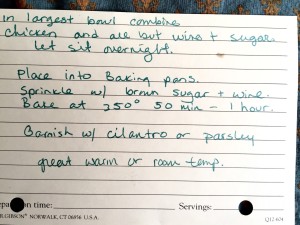 in largest bowl combine
chicken and all but wine + sugar.
let sit overnight.
Place into Baking pans.
Sprinkle w/ brown sugar + wine.
Bake at 350° 50 min - 1 hour.
Garnish w/ cilantro or parsley
great warm or room temp.
time: Servings:
GIBSON® NORWALK, CT 06856 U.S.A.